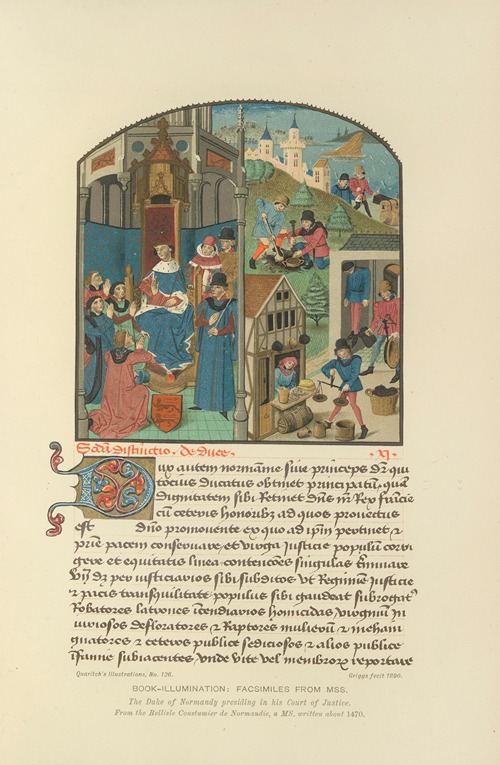 distinctio. de duce. .xi.
Dux autem normannie siue princeps dr qui
tocius ducatus obtinet principatū. quam
dignitatem sibi Retinet dns nr Rex francie
cū ceteris honoribz ad quos prouectus
est dno promouente ex quo ad ipm pertinet z
prie pacem conseruare, et virga iusticie populum corri
gere et equitatis linea contenciōes singulas
dz per iusticiarios sibi subditos Vt Regimine iusticie
z pacis tranquilitate populus sibi gaudeat
Robatores latrones īcendiarios homicidas virginum in
iuriosos defloratores z Raptores mulierum z mehain
gnatores z ceteros publice sediciosos z alios publice
īfamie subiacentes Vnde vite vel reportare
Quaritch's Illustrations, No. 126.
Griggs fecit 1890.
BOOK-ILLUMINATION: FACSIMILES FROM MSS.
The Duke of Normandy presiding in his Court of Justice.
From the Bellisle Coustumier de Normandie, a MS. written about 1470.